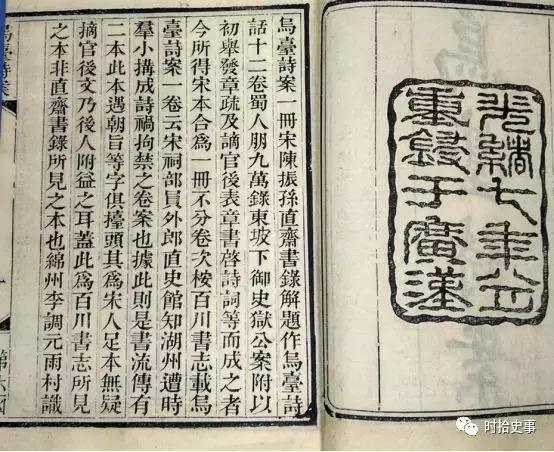 光緒七年
重鋟于廣漢
烏臺詩案一冊宋陳振孫直齋書錄解題作烏臺詩
話十二卷蜀人朋九萬錄東坡下御史獄公案附以
初舉發章疏及謫官後表章書啓詩詞等而成之者
今所得宋本合爲一冊不分卷次桉百川書志載烏
臺詩案一卷云宋祠部員外郎直史館知湖州遭時
羣小搆成詩禍拘禁之卷案也據此則是書流傳有
二本此本遇朝旨等字俱擡頭其爲宋人足本無疑
摘官後文乃後人附益之耳蓋此爲百川書志所見
之本非直齋書錄所見之本也綿州李調元雨村識
烏臺詩案
第六函
时拾史事